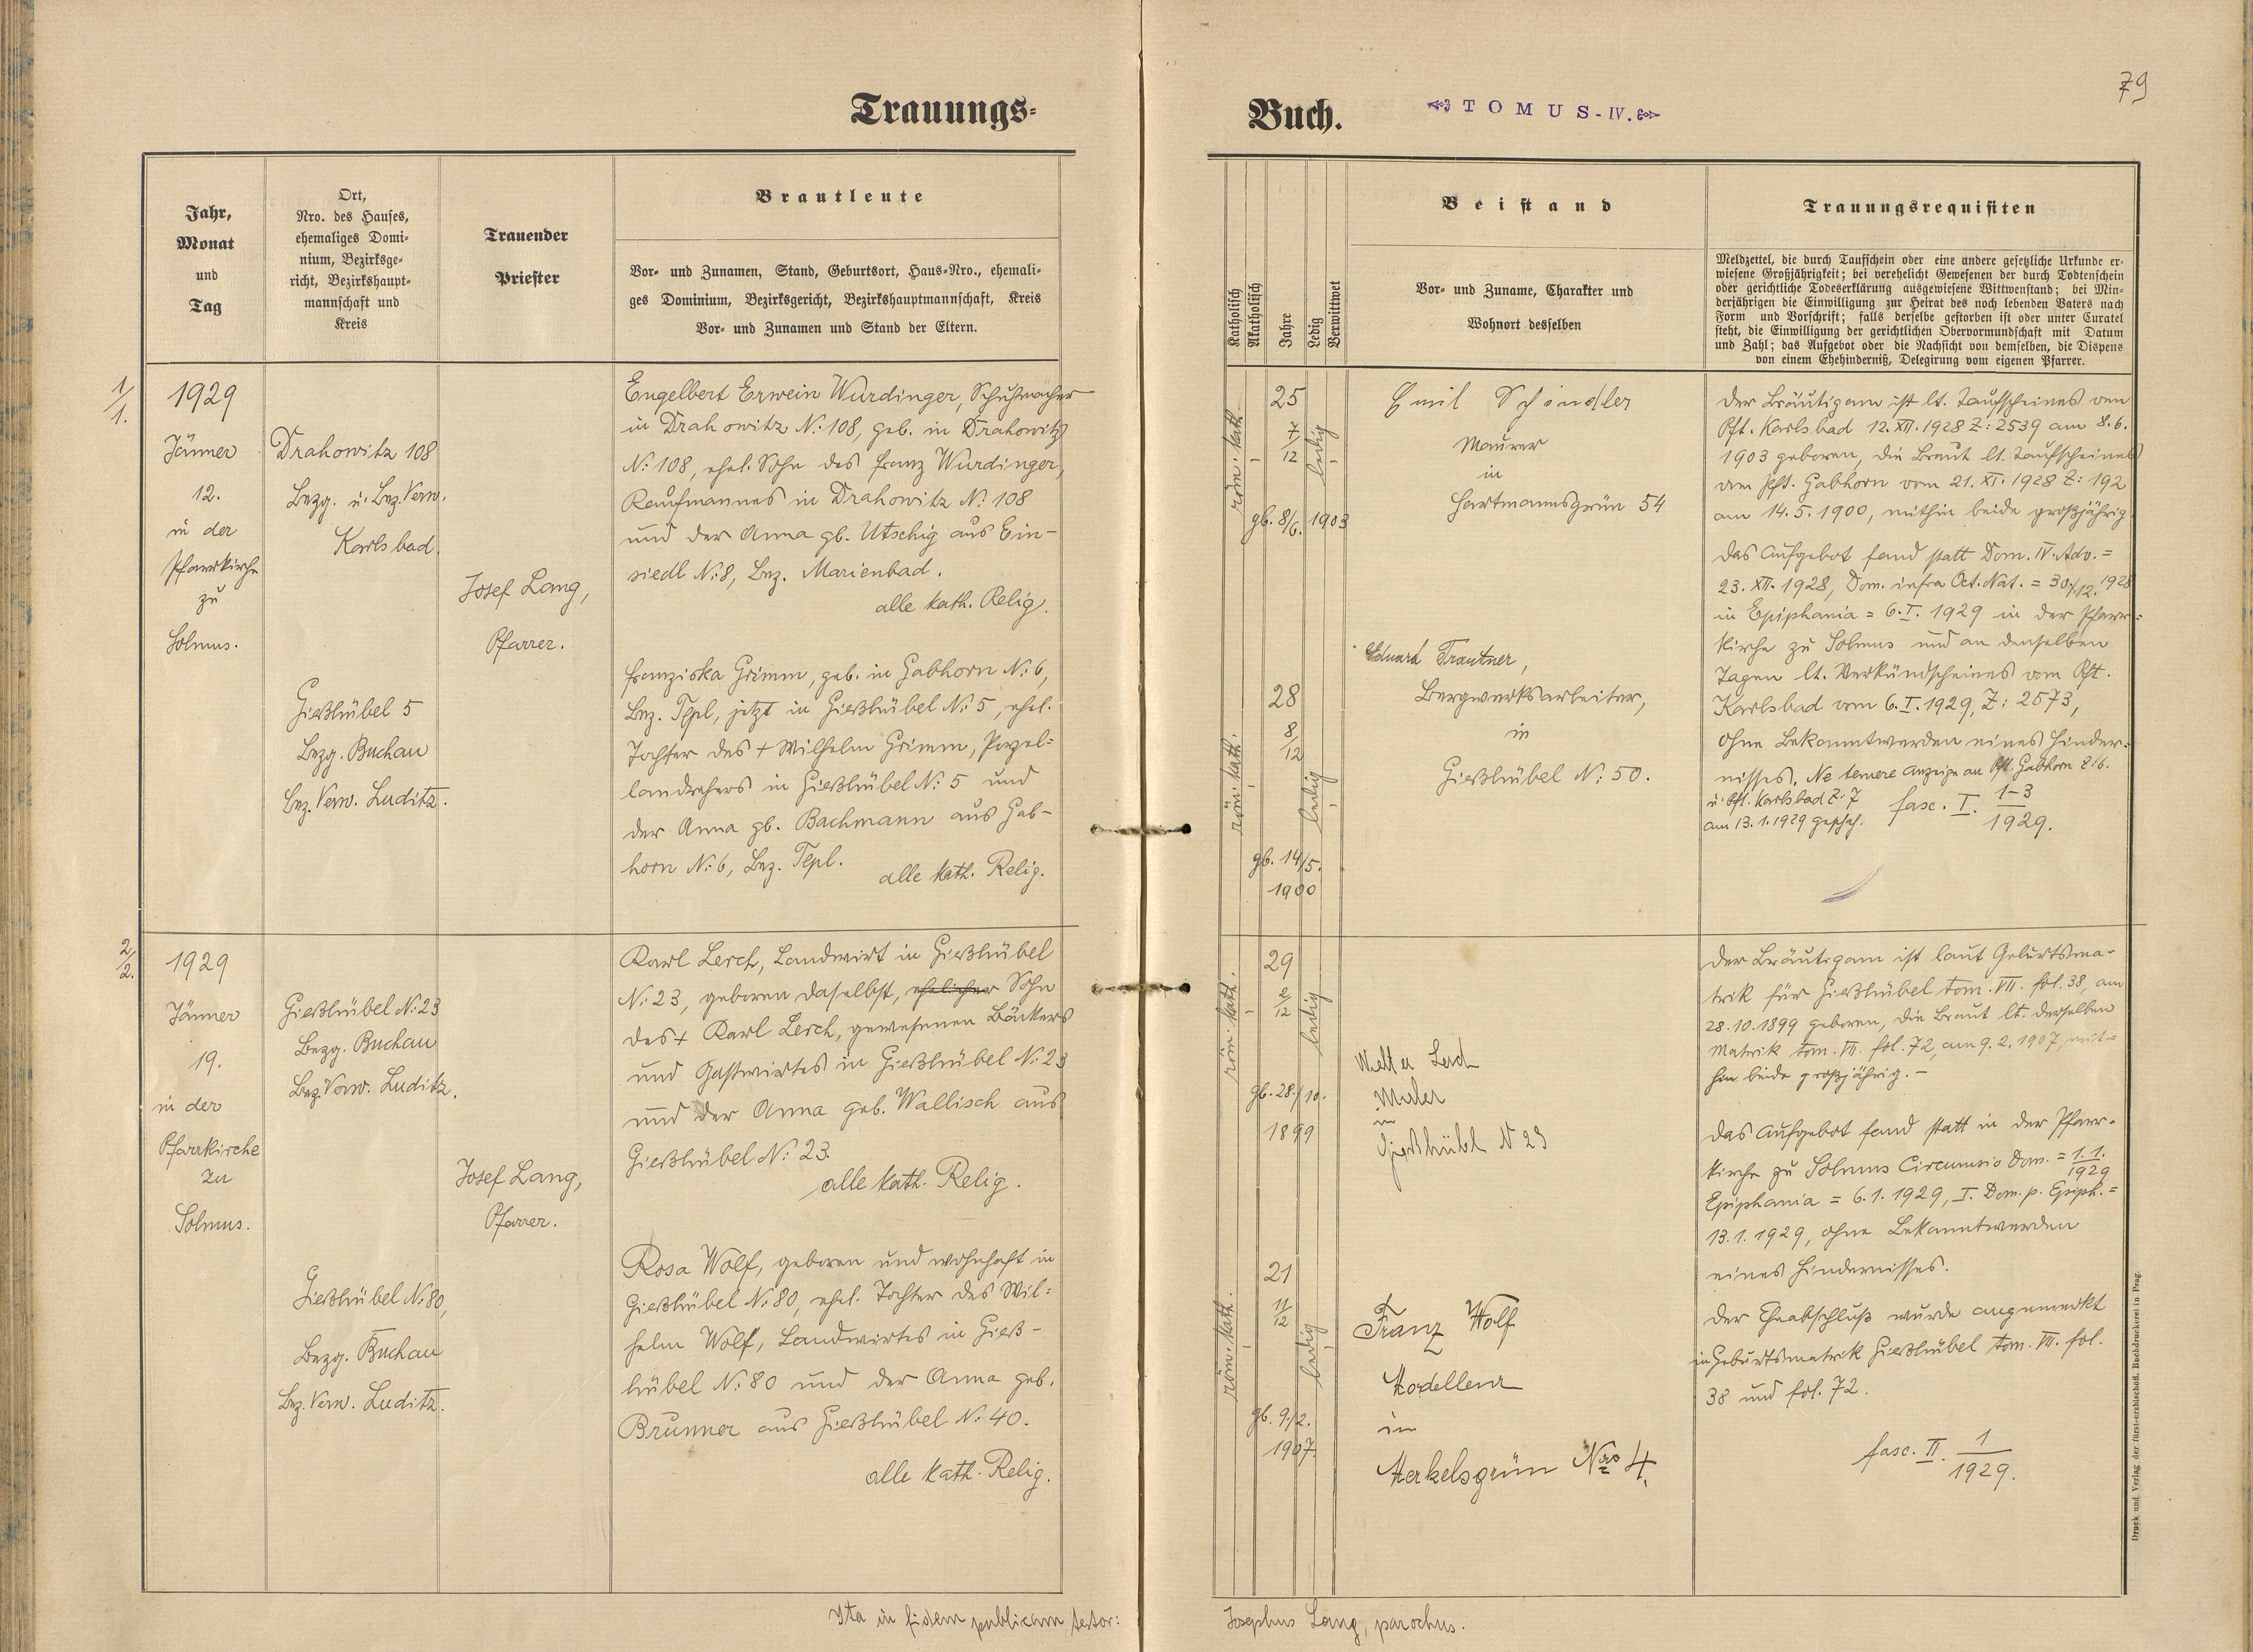 79
Trauungs-
Buch.
TOMUS-IV.
Jahr,
Monat
und
Tag
Ort,
Nro. des Hauses,
ehemaliges Domi-
nium, Bezirksge-
richt, Bezirkshaupt-
mannschaft und
Kreis
Trauender
Priester
Brautleute
Vor- und Zunamen, Stand, Geburtsort, Haus-Nro., ehemali-
ges Dominium, Bezirksgericht, Bezirkshauptmannschaft, Kreis
Vor- und Zunamen und Stand der Eltern.
Katholisch
Akatholisch
Jahre
Ledig
Verwittwet
Beistand
Vor- und Zuname, Charakter und
Wohnort desselben
Trauungsrequisiten
Meldzettel, die durch Taufschein oder eine andere gesetzliche Urkunde er-
wiesene Großjährigkeit; bei verehelicht Gewesenen der durch Todtenschein
oder gerichtliche Todeserklärung ausgewiesene Wittwenstand; bei Min-
derjährigen die Einwilligung zur Heirat des noch lebenden Vaters nach
Form und Vorschrift; falls derselbe gestorben ist oder unter Curatel
steht, die Einwilligung der gerichtlichen Obervormundschaft mit Datum
und Zahl; das Aufgebot oder die Nachsicht von demselben, die Dispens
von einem Ehehinderniß, Delegirung vom eigenen Pfarrer.
1/1.
1929
Jänner
12.
in der
Pfarrkirche
zu
Solmus.
Drahowitz 108
Bezg. u. Bez. Verw.
Karlsbad.
Gießhübel 5
Bezg. Buchau
Bez. Verw. Luditz.
Josef Lang,
Pfarrer.
Engelbert Erwein Wurdinger, Schuhmacher
in Drahowitz N: 108, geb. in Drahowitz
N: 108, ehel. Sohn des Franz Wurdinger,
Kaufmannes in Drahowitz N: 108
und der Anna gb. Utschig aus Ein-
siedl N: 8, Bez. Marienbad.
alle kath. Relig.
Franziska Grimm, geb. in Gabhorn N: 6,
Bez. Tepl, jetzt in Gießhübel N: 5, ehel.
Tochter des + Wilhelm Grimm, Porzel-
landrehers in Gießhübel N: 5 und
der Anna gb. Bachmann aus Gab-
horn N: 6, Bez. Tepl.
alle kath. Relig.
röm. kath.
25
7/12
ledig
gb. 8/6. 1903
röm. kath.
28
8/12
ledig
gb. 14/5.
1900
Emil Schindler
Maurer
in
Hartmannsgrün 54
Eduard Trautner,
Bergwerksarbeiter,
in
Gießhübel N: 50.
Der Bräutigam ist lt. Taufscheines vom
Pft. Karlsbad 12. XII. 1928 Z: 2539 am 8.6.
1903 geboren, die Braut lt. Taufscheines
vom Pft. Gabhorn vom 21. XI. 1928 Z: 192
am 14.5.1900, mithin beide großjährig.
Das Aufgebot fand statt Dom. IV. Adv. =
23. XII. 1928, Dom. infra Oct. Nat. = 30./12. 1928
in Epiphania = 6. I. 1929 in der Pfarr-
kirche zu Solmus und an denselben
Tagen lt. Verkündscheines vom Pft.
Karlsbad vom 6. I. 1929, Z: 2573,
ohne Bekanntwerden eines Hinder-
nisses. Ne temere Anzeige an Pft. Gabhorn Z: 6.
u. Pft. Karlsbad Z: 7
am 13.1.1929 gesch.
fasc. I. 1-3/1929.
2/2.
1929
Jänner
19.
in der
Pfarrkirche
zu
Solmus.
Gießhübel N: 23
Bezg. Buchau
Bez. Verw. Luditz.
Gießhübel N: 80,
Bezg. Buchau
Bez. Verw. Luditz.
Josef Lang,
Pfarrer.
Karl Lerch, Landwirt in Gießhübel
N: 23, geboren daselbst, ehelicher Sohn
des + Karl Lerch, gewesenen Bäckers
und Gastwirtes in Gießhübel N: 23
und der Anna geb. Wallisch aus
Gießhübel N: 23.
alle kath. Relig.
Rosa Wolf, geboren und wohnhaft in
Gießhübel N: 80, ehel. Tochter des Wil-
helm Wolf, Landwirtes in Gieß-
hübel N: 80 und der Anna geb.
Brunner aus Gießhübel N: 40.
alle kath. Relig.
röm. kath.
29
2/12
ledig
gb. 28./10.
1899
röm. kath.
21
11/12
ledig
gb. 9./2.
1907.
Lerch
Maler
in
Gießhübel N 23
Franz Wolf
in
Merkelsgrün Nro 4.
Der Bräutigam ist laut Geburtsma-
trik für Gießhübel tom. VII. fol. 38, am
28.10.1899 geboren, die Braut lt. derselben
Matrik tom. VII. fol. 72, am 9.2.1907, mit-
hin beide großjährig. -
Das Aufgebot fand statt in der Pfarr-
kirche zu Solmus Circumcisio Dom. = 1.1./1929
Epiphania = 6.1.1929, I. Dom. p. Epiph. =
13.1.1929, ohne Bekanntwerden
eines Hindernisses.
Der Eheabschluß wurde angemerkt
in Geburtsmatrik Gießhübel tom. VII. fol.
38 und fol. 72.
fasc. II. 1/1929.
Ita in fidem publicam testor:
Josephus Lang, parochus.
Druck und Verlag der fürst-erzbischöfl. Buchdruckerei in Prag.